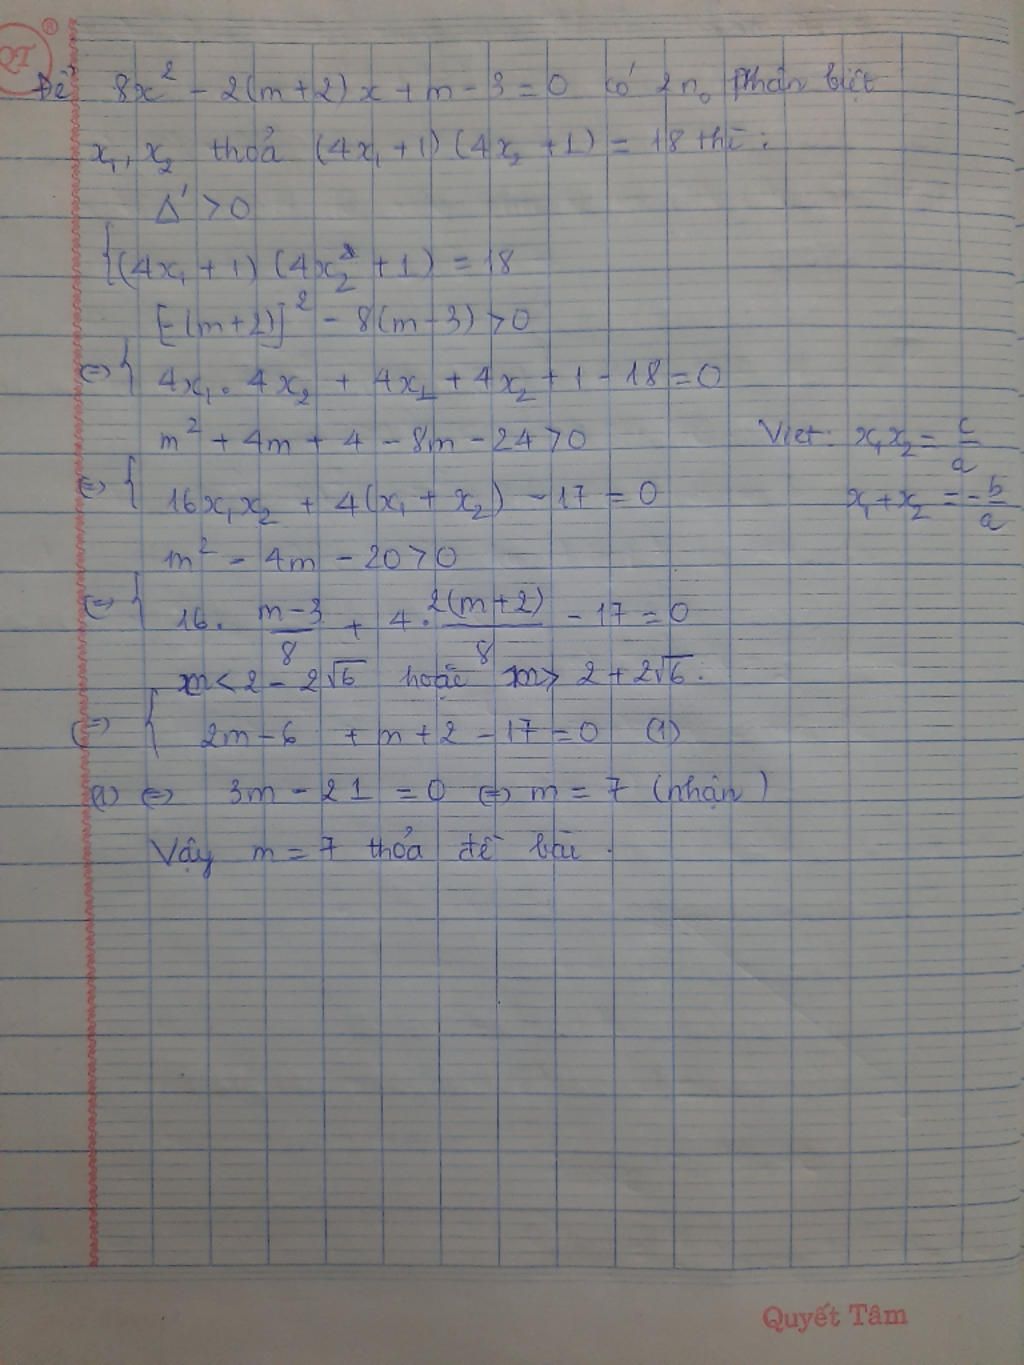 QT ®
Để 8x² - 2(m+2)x + m - 3 = 0 có 2 n₀ phân biệt
x₁, x₂ thoả (4x₁ + 1)(4x₂ + 1) = 18 thì :
Δ' > 0
{(4x₁ + 1)(4x₂ + 1) = 18
[-(m+2)]² - 8(m-3) > 0
⇔ { 4x₁ . 4x₂ + 4x₁ + 4x₂ + 1 - 18 = 0
m² + 4m + 4 - 8m - 24 > 0 Viet: x₁x₂ = c/a
⇔ { 16x₁x₂ + 4(x₁ + x₂) - 17 = 0 x₁ + x₂ = -b/a
m² - 4m - 20 > 0
⇔ { 16 . (m-3)/8 + 4 . 2(m+2)/8 - 17 = 0
m < 2 - 2√6 hoặc m > 2 + 2√6.
⇔ { 2m - 6 + m + 2 - 17 = 0 (1)
(1) ⇔ 3m - 21 = 0 ⇔ m = 7 (nhận)
Vậy m = 7 thỏa đề bài .
Quyết Tâm